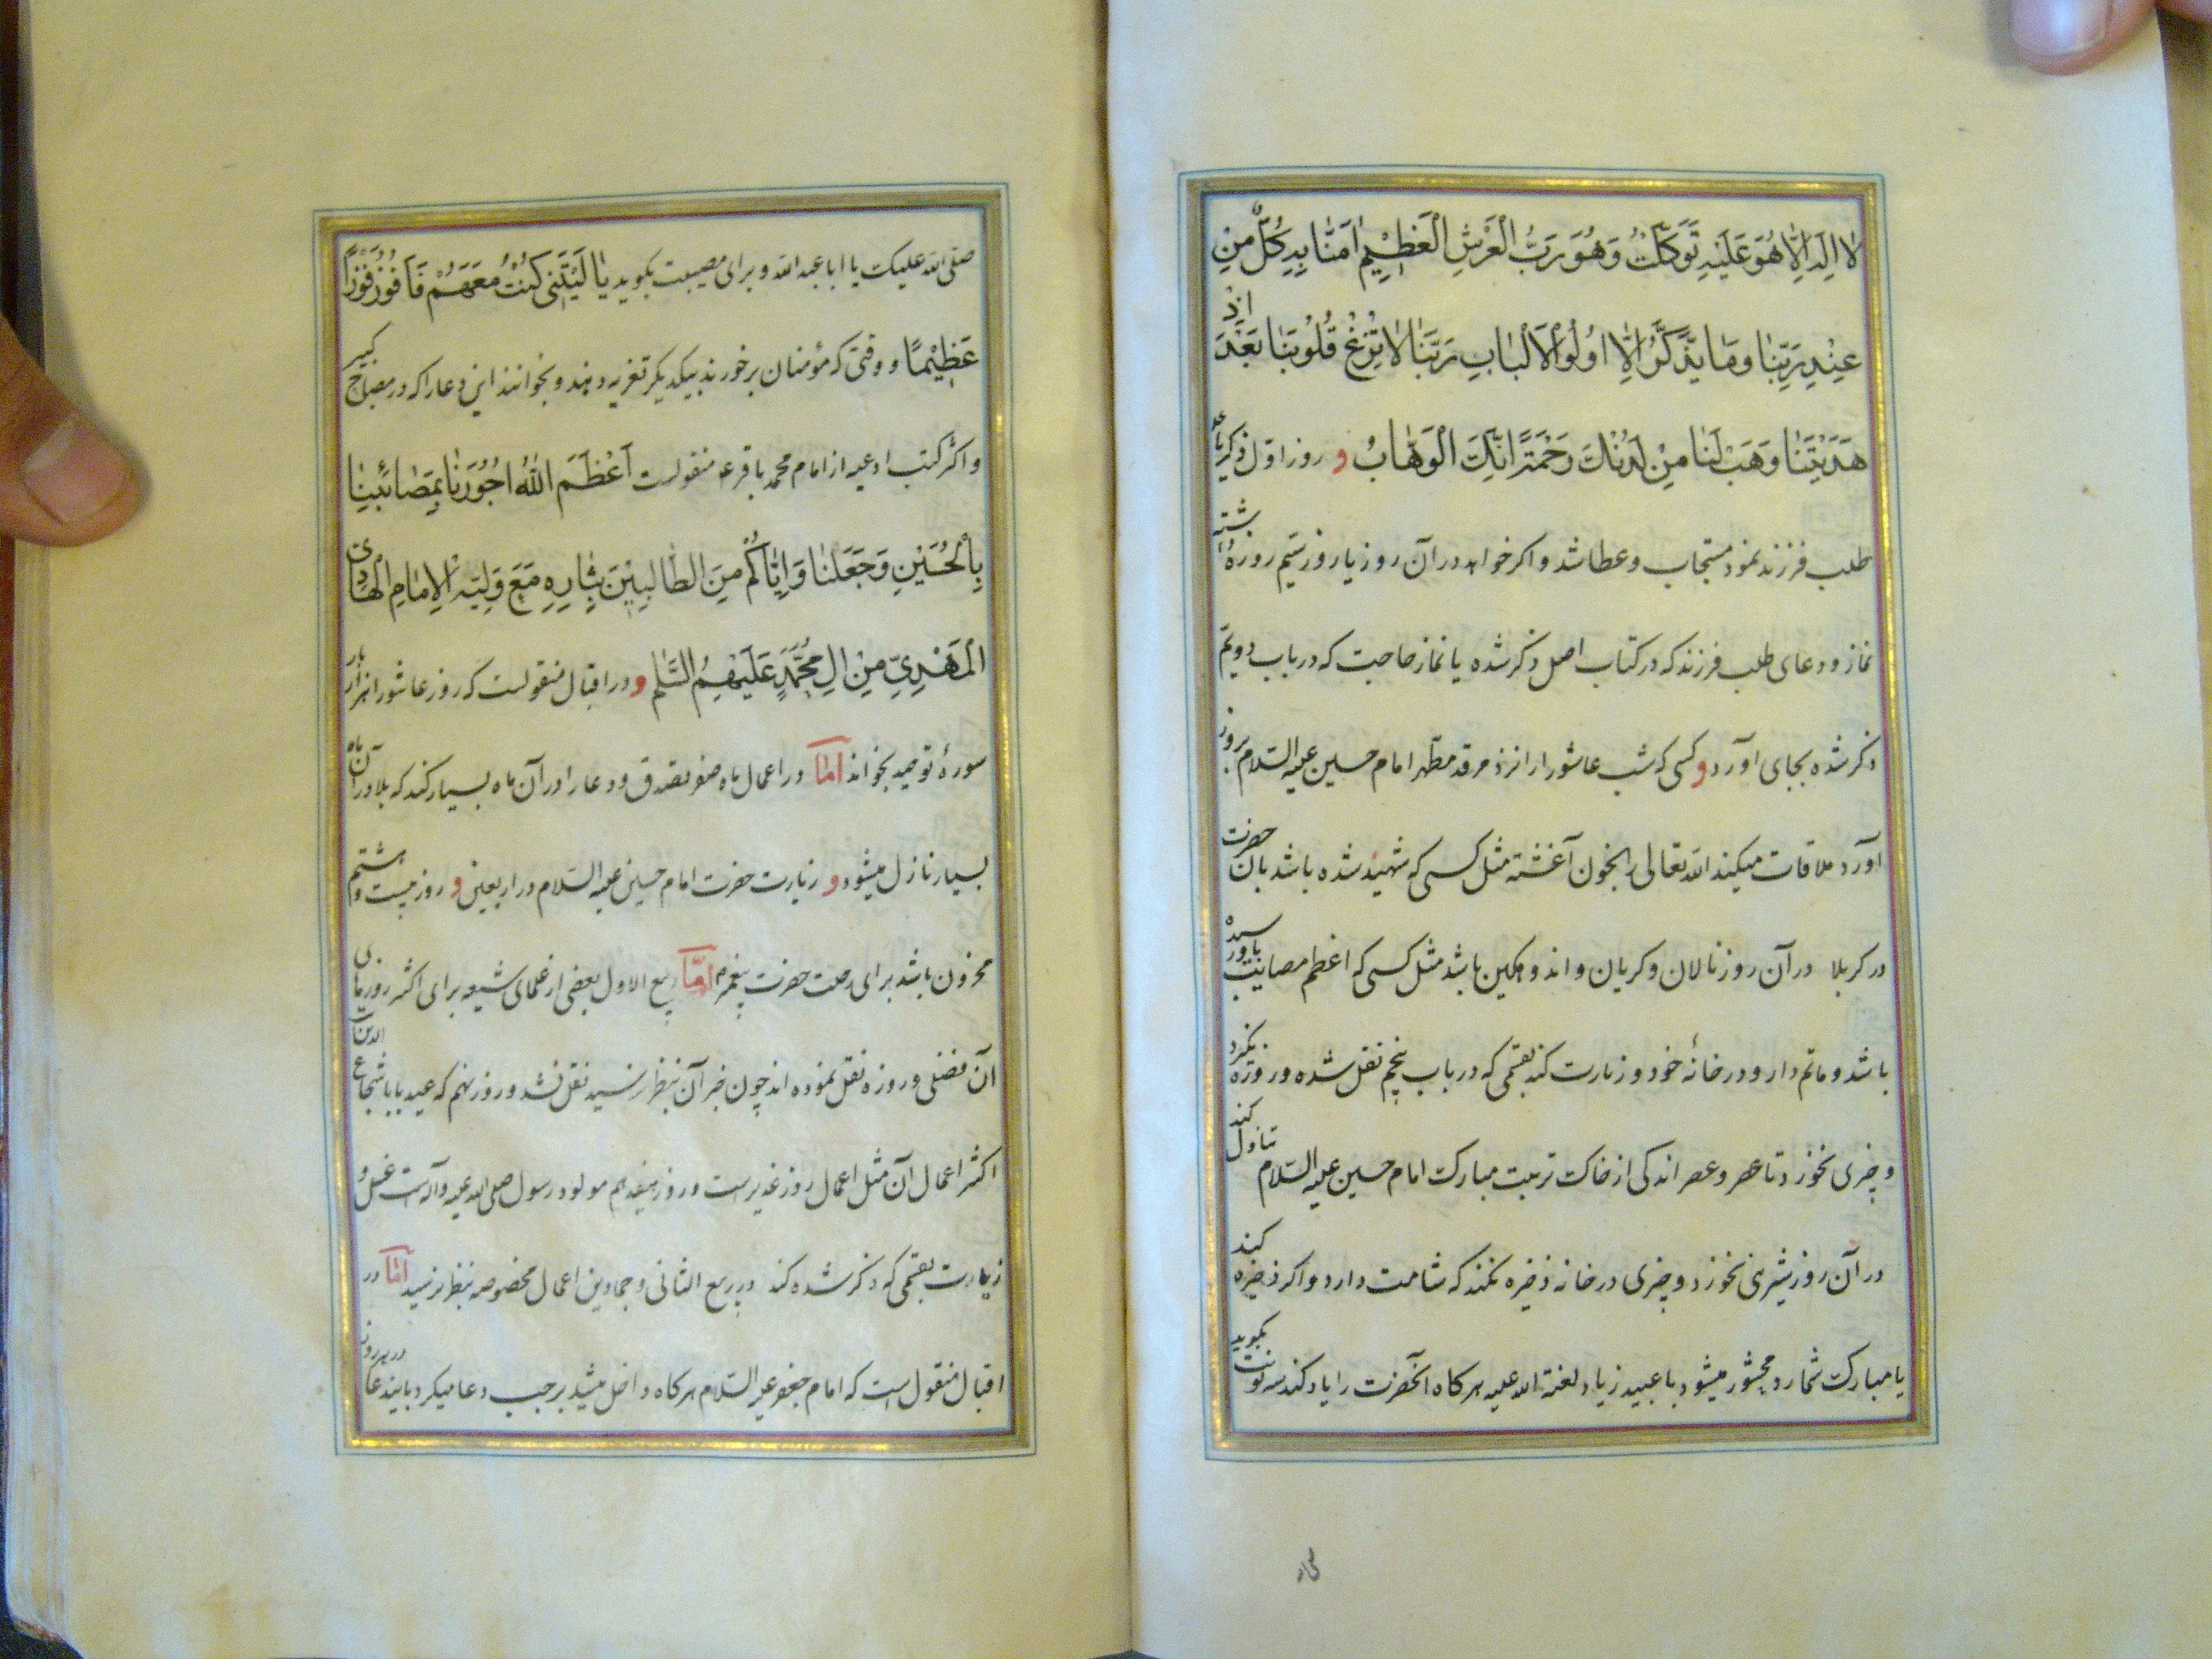 لا اِلٰهَ اِلّا هُوَ عَلَيْهِ تَوَكَّلْتُ وَهُوَ رَبُّ الْعَرْشِ الْعَظِيْمِ اٰمَنّٰا بِهِ كُلٌّ مِنْ
عِنْدِ رَبِّنٰا وَمٰا يَذَّكَّرُ اِلّٰا اُولُوا الْاَلْبٰابِ رَبَّنٰا لٰا تُزِغْ قُلُوْبَنٰا بَعْدَ اِذْ
هَدَيْتَنٰا وَهَبْ لَنٰا مِنْ لَدُنْكَ رَحْمَةً اِنَّكَ الْوَهّٰابُ و روز اول ذكريا
طلب فرزند نمود مستجاب و عطا شد و اكر خواهد در آن روز يا روز سيم روزهٔ
نماز و دعای طلب فرزند كه در كتاب اصل ذكر شده يا نماز حاجت كه در باب دويم
ذكر شده بجای آورد و كسی كه شب عاشورا را نزد مرقد مطهر امام حسين عليه السلام بروز
آورد ملاقات ميكند الله تعالی را بخون آغشته مثل كسی كه شهيد شده باشد با آن حضرت
در كربلا در آن روز نالان و كريان و اندوهكين باشد مثل كسی كه اعظم مصايب باو رسيده
باشد و ماتم دارد در خانهٔ خود و زيارت كند بقسمی كه در باب پنجم نقل شده و روزه نكيرد
و چيزی نخورد تا عصر و عصر اندكی از خاك تربت مبارك امام حسين عليه السلام تناول كند
در آن روز شيرينی نخورد و چيزی در خانه ذخيره نكند كه شامت دارد و اكر ذخيره كند
يا مبارك شمارد محشور ميشود با عبيد زياد لعنة الله عليه هر كاه آنحضرت را ياد كند سه نوبت بكويد
صلی الله عليك يا ابا عبد الله و برای مصيبت بكويد يٰا لَيْتَنِی كُنْتُ مَعَهُمْ فَاَفُوْزَ فَوْزًا
عَظِيْمًا و وقتی كه مؤمنان برخورند بيكديكر تعزيه دهند و بخوانند اين دعا را كه در مصباح كبير
و اكثر كتب ادعيه از امام محمد باقر ع منقولست اَعْظَمَ اللهُ اُجُوْرَنٰا بِمَصٰائِبِنٰا
بِالْحُسَيْنِ وَجَعَلَنٰا وَاِيّٰاكُمْ مِنَ الطّٰالِبِيْنَ بِثٰارِهِ مَعَ وَلِيِّهِ الْاِمٰامِ الْهٰادِی
الْمَهْدِیِّ مِنْ اٰلِ مُحَمَّدٍ عَلَيْهِمُ السَّلٰم و در اقبال منقولست كه روز عاشورا هزار بار
سورهٔ توحيد بخواند اما در اعمال ماه صفر تصدق و دعا را در آن ماه بسيار كند كه بلا در آن ماه
بسيار نازل ميشود و زيارت حضرت امام حسين عليه السلام در اربعين و روز بيست و هشتم
محزون باشد برای رحلت حضرت پيغمبر اما ربيع الاول بعضی از علمای شيعه برای اكثر روزهای
آن فضلی و روزه نقل نموده اند چون خبر آن بنظر نرسيد نقل نشد و روز نهم كه عيد بابا شجاع الدين
اكثر اعمال آن مثل اعمال روز غدير است و روز هفدهم مولود رسول صلی الله عليه وآله است غسل و
زيارت بقسمی كه ذكر شده كند در ربيع الثانی و جمادين اعمال مخصوصه بنظر نرسيد اما در
اقبال منقول است كه امام جعفر عليه السلام هر كاه داخل ميشد برجب دعا ميكرد باين دعا در هر روز